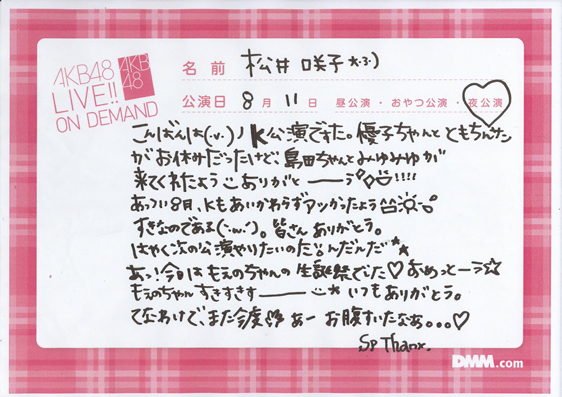 AKB48
LIVE!!
ON DEMAND
AKB
48
名前 松井咲子
公演日 8月11日 昼公演・おやつ公演・夜公演
こんばんは(・v・)ノ K公演でした。優子ちゃんと ともちんサン
がお休みだったけど、島田ちゃんとみゆみゆが
来てくれたよう ありがと——う!!!!
あっつい8月、Kもあいかわらずアツかったよう
すきなのである(・ω・)。皆さんありがとう。
はやく次の公演やりたいのだ。んだんだ
あっ!今日はもえのちゃんの生誕祭でした♡おめっとーう☆
もえのちゃんすきすきすー—— いつもありがとう。
てなわけで、また今度 あー お腹すいたなぁ。。。♡
Sp Thanx.
DMM.com